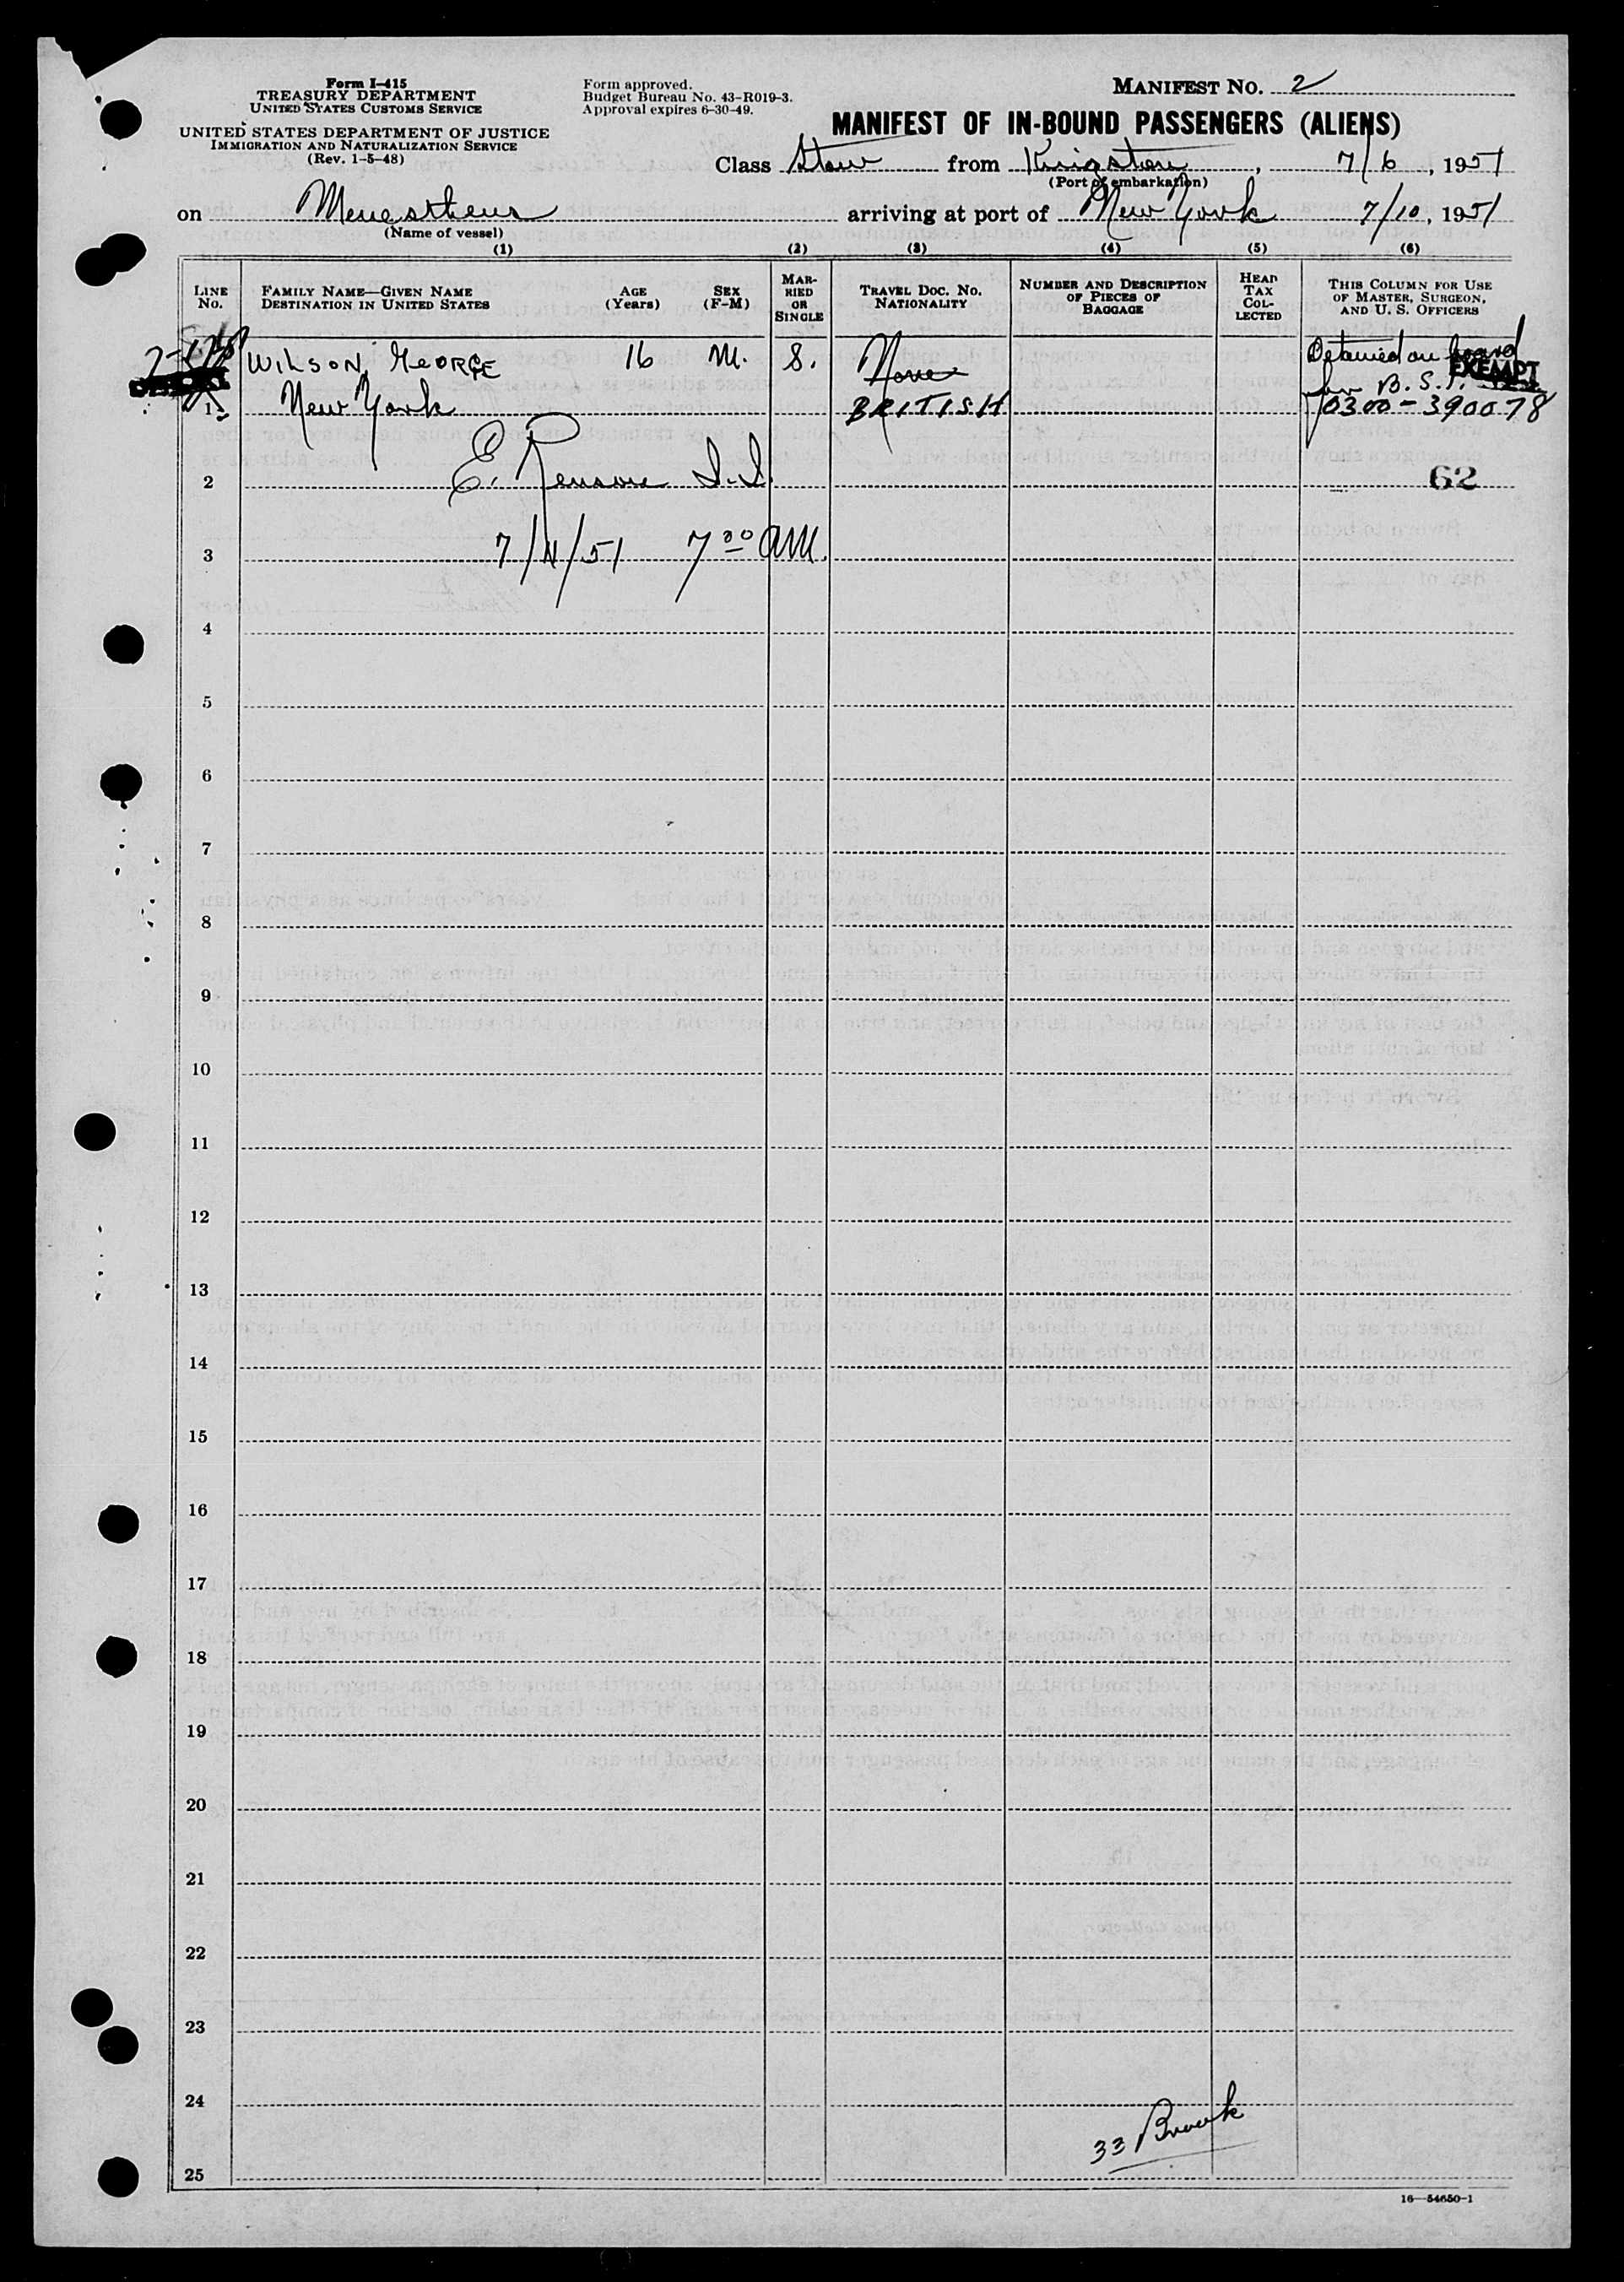 Form I-415
TREASURY DEPARTMENT
UNITED STATES CUSTOMS SERVICE
UNITED STATES DEPARTMENT OF JUSTICE
IMMIGRATION AND NATURALIZATION SERVICE
(Rev. 1-5-48)
Form approved.
Budget Bureau No. 43-R019-3.
Approval expires 6-30-49.
MANIFEST NO. 2
MANIFEST OF IN-BOUND PASSENGERS (ALIENS)
Class Stow from Kingston, 7/6, 1951
(Port of embarkation)
on Menestheus arriving at port of New York 7/10, 1951
(Name of vessel)
(1) (2) (3) (4) (5) (6)
LINE NO.
FAMILY NAME—GIVEN NAME
DESTINATION IN UNITED STATES
AGE (Years)
SEX (F-M)
MARRIED OR SINGLE
TRAVEL DOC. NO.
NATIONALITY
NUMBER AND DESCRIPTION OF PIECES OF BAGGAGE
HEAD TAX COLLECTED
THIS COLUMN FOR USE OF MASTER, SURGEON, AND U. S. OFFICERS
WILSON, GEORGE 16 M. S. None Detained on board
EXEMPT
for B.S.I.
1 New York BRITISH 0300-390078
2 E. I.I. 62
3 7/11/51 7 00 AM.
4
5
6
7
8
9
10
11
12
13
14
15
16
17
18
19
20
21
22
23
24
33 Brook
25
16—54650-1